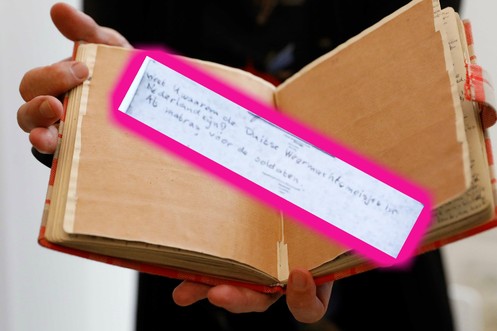 Weet u waarom de Duitse Weermachtsmeisjes in
Nederland zijn?
Als matras voor de soldaten